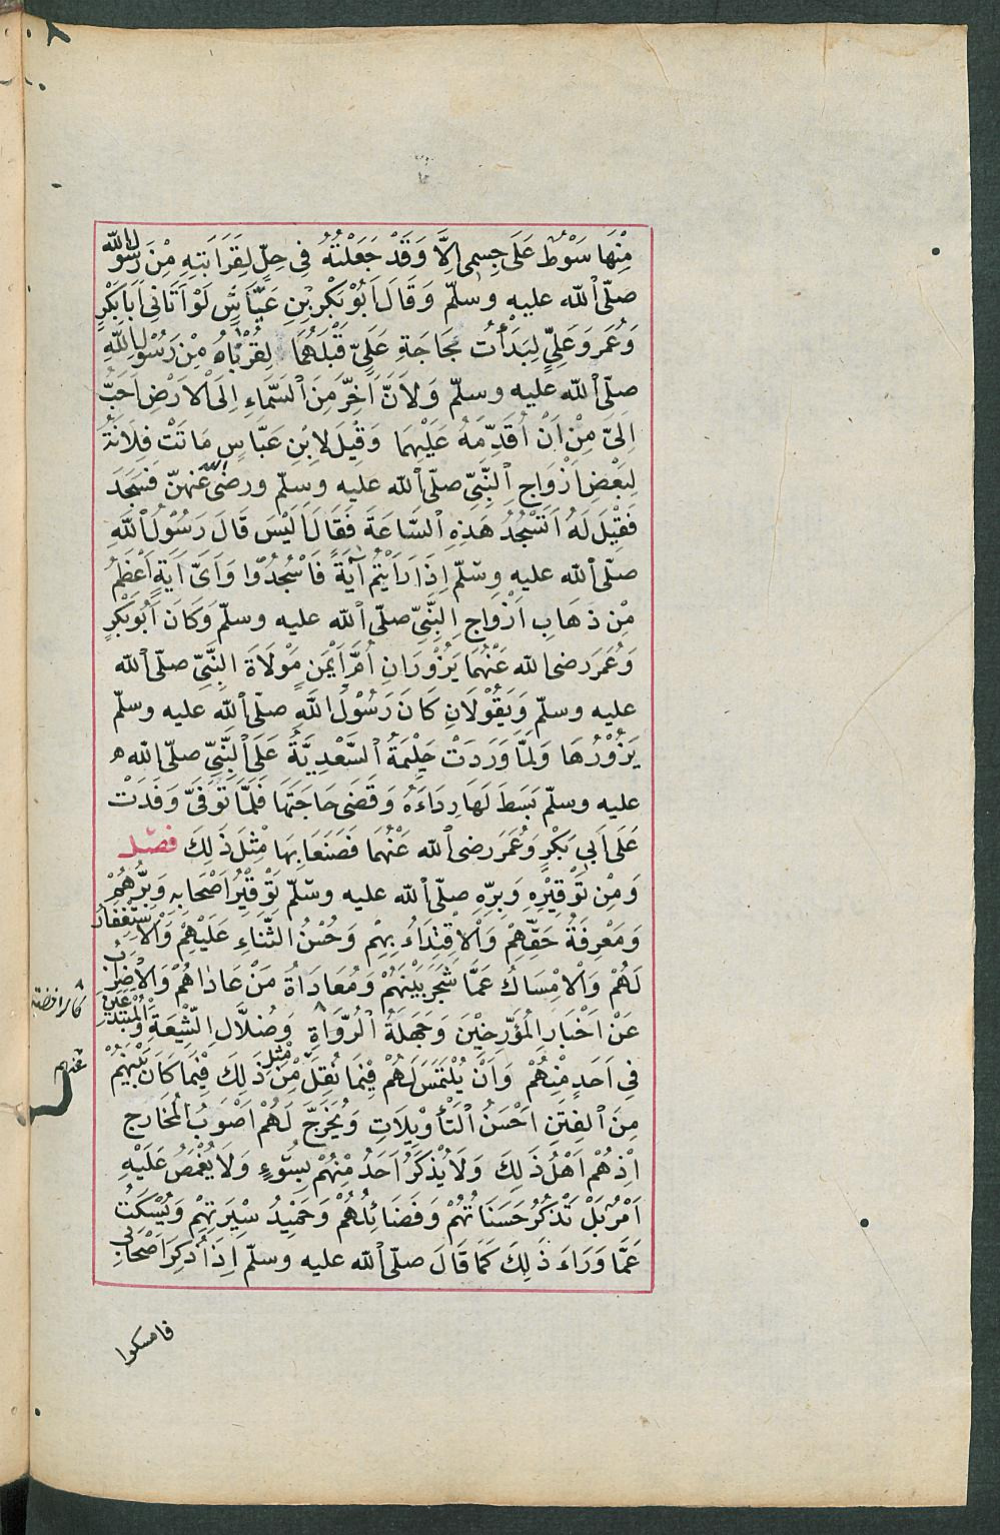 مِنْهَا سَوْطٌ عَلَى جِسمِى اِلَّا وَقَدْ جَعَلْتُهُ فِى حِلٍّ لِقَرَابَتِهِ مِنْ رَسُولِ اللّٰه
صلّى ٱلله عليهِ وسلّم وَقَالَ اَبُوْ بَكْرِ بْنِ عَيَّاشٍ لَوْ اَتَانِى اَبَا بَكْرٍ
وَعُمَرَ وَعَلِىٍّ لَبَدَأْتُ بحَاجَةِ عَلِىّ قَبْلَهُمَا لِقُرْبَاهُ مِنْ رَسُوْلِ اللهِ
صلّى ٱلله عليه وسلّم وَلَاَنَّ اَخِرَّ مِنَ ٱلسَّمَاءِ اِلَى ٱلاَرْضِ اَحَبُّ
اِلَىّ مِنْ اَنْ اُقَدِّمَهُ عَلَيْهِمَا وَقِيْلَ لِابْنِ عَبَّاسٍ مَاتَتْ فِلَانَةُ
لِبَعْضِ اَزْوَاجِ ٱلنَّبِىّ صلّى ٱلله عليه وسلّم ورضى الله عَنهنّ فَسَجَدَ
فَقِيْلَ لَهُ اَتَسْجُدُ هَذِهِ ٱلسَّاعَةَ فَقَالَ اَلَيْسَ قَالَ رَسُوْلُ ٱللهِ
صلّى ٱلله عليه وسلّم اِذَا رَاَيْتُمْ آيَةً فَاسْجُدُوْا وَاَىّ آيَةٍ اَعْظَمُ
مِنْ ذَهَابِ اَزْوَاجِ النَّبِىّ صلّى ٱلله عليه وسلّم وَكَانَ اَبُوْ بَكْرٍ
وَعُمَرَ رضى الله عَنْهُمَا يَزُوْرَانِ اُمَّ اَيْمَنٍ مَوْلَاةَ النَّبِىّ صلّى ٱلله
عليه وسلّم وَيَقُوْلَانِ كَانَ رَسُوْلُ اللهِ صلّى ٱلله عليه وسلّم
يَزُوْرُهَا وَلمَّا وَرَدَتْ حَلِيْمَةُ ٱلسَّعْدِيَّةُ عَلَى ٱلنَّبِىّ صلّى الله ه
عليه وسلّم بَسَطَ لَهَا رِدَاءَهُ وَقَضَى حَاجَتَهَا فَلَمَّا تُوُفّىَ وَفَدَتْ
عَلَى اَبِى بَكْرٍ وَعُمَرَ رضى ٱلله عَنْهُمَا فَصَنَعَا بِهَا مِثْلَ ذَلِكَ فصل
وَمِنْ تَوْقِيْرِهِ وَبِرِّهِ صلّى ٱلله عليه وسلّم تَوْقِيْرُ اَصْحَابِهِ وَبِرُّهُمْ
وَمَعْرِفَةُ حَقِّهِمْ وَٱلْاِقْتِدَاءُ بِهِمْ وَحُسْنُ الثَّنَاءِ عَلَيْهِمْ وَالْاِسْتِغْفَارُ
لَهُمْ وَٱلْاِمْسَاكُ عَمَّا شَجَرَ بَيْنَهُمْ وَمُعَادَاةُ مَنْ عَادَاهُمْ وَالْاِضْرَابُ
عَنْ اَخْبَارِ المُؤَرِّخِيْنَ وَجَهَلَةُ ٱلرُّوَاةِ وَضُلَّالِ الشِّيْعَةِ وَالْمُبْتَدِعِيْنَ
فِى اَحَدٍ مِنْهُمْ وَاَنْ يُلْتَمَسَ لَهُمْ فِيْمَا نُقِلَ مِنْ مثل ذَلِكَ فِيْمَا كَانَ بَيْنَهُمْ
مِنَ ٱلفِتَنِ اَحْسَنُ ٱلتَّأوِيْلَاتِ وَيُخَرَّجَ لَهُمْ اَصْوَبُ المَخَارج
اِذْ هُمْ اَهْلُ ذَلِكَ وَلَا يُذْكَرُ اَحَدٌ مِنْهُمْ بِسُوْءٍ وَلَا يُغْمَصُ عَلَيْهِ
اَمْرٌ بَلْ تُذْكَرُ حَسَنَاتُهُمْ وَفَضَائِلُهُمْ وَحَمِيْدُ سِيْرَتِهِمْ وَيُسْكَتُ
عَمَّا وَرَاءَ ذَلِكَ كَمَا قَالَ صلّى ٱلله عليه وسلّم اِذَا ذُكِرَ اَصْحَابِى
فامسكوا